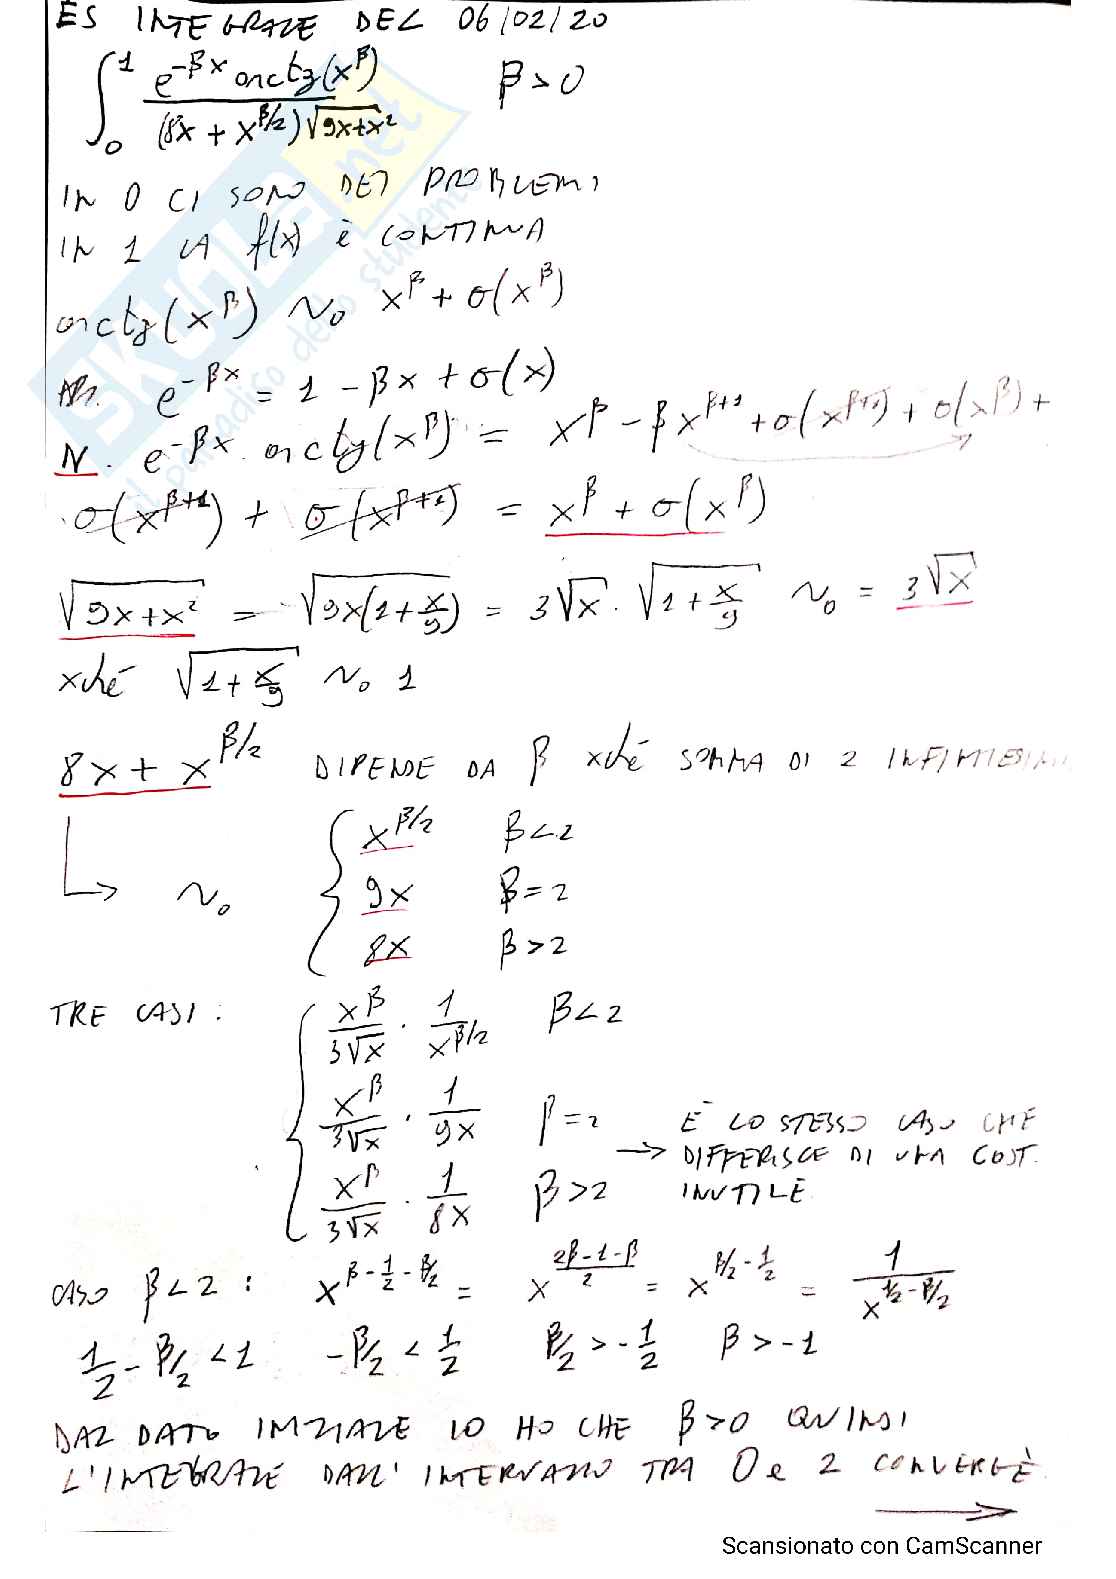 ES INTEGRALE DEL 06/02/20
∫₀¹ e^(-βx) arctg(x^β) / (8x + x^(β/2))√(9x+x²)   β>0
IN 0 CI SONO DEI PROBLEMI
IN 1 LA f(x) è CONTINUA
arctg(x^β) ~₀ x^β + o(x^β)
e^(-βx) = 1 - βx + o(x)
N. e^(-βx) · arctg(x^β) = x^β - βx^(β+1) + o(x^(β+1)) + o(x^β) +
o(x^(β+1)) + o(x^(β+1)) = x^β + o(x^β)
√(9x+x²) = √(9x(1+x/9)) = 3√x · √(1+x/9) ~₀ = 3√x
xché √(1+x/9) ~₀ 1
8x + x^(β/2) DIPENDE DA β xché SOMMA DI 2 INFINITESIMI
↳ ~₀ { x^(β/2) β<2
9x β=2
8x β>2
TRE CASI: { x^β/3√x · 1/x^(β/2) β<2
x^β/3√x · 1/9x β=2
x^β/3√x · 1/8x β>2
→ È LO STESSO CASO CHE
DIFFERISCE DI UNA COST.
INUTILE
CASO β<2 : x^(β-1/2-β/2) = x^((2β-1-β)/2) = x^(β/2-1/2) = 1/x^(1/2-β/2)
1/2 - β/2 < 1   -β/2 < 1/2   β/2 > -1/2   β > -1
DAL DATO INIZIALE IO HO CHE β>0 QUINDI
L'INTEGRALE DALL'INTERVALLO TRA 0 e 2 CONVERGE
→
SKUOLA.net
il paradiso dello studente
Scansionato con CamScanner